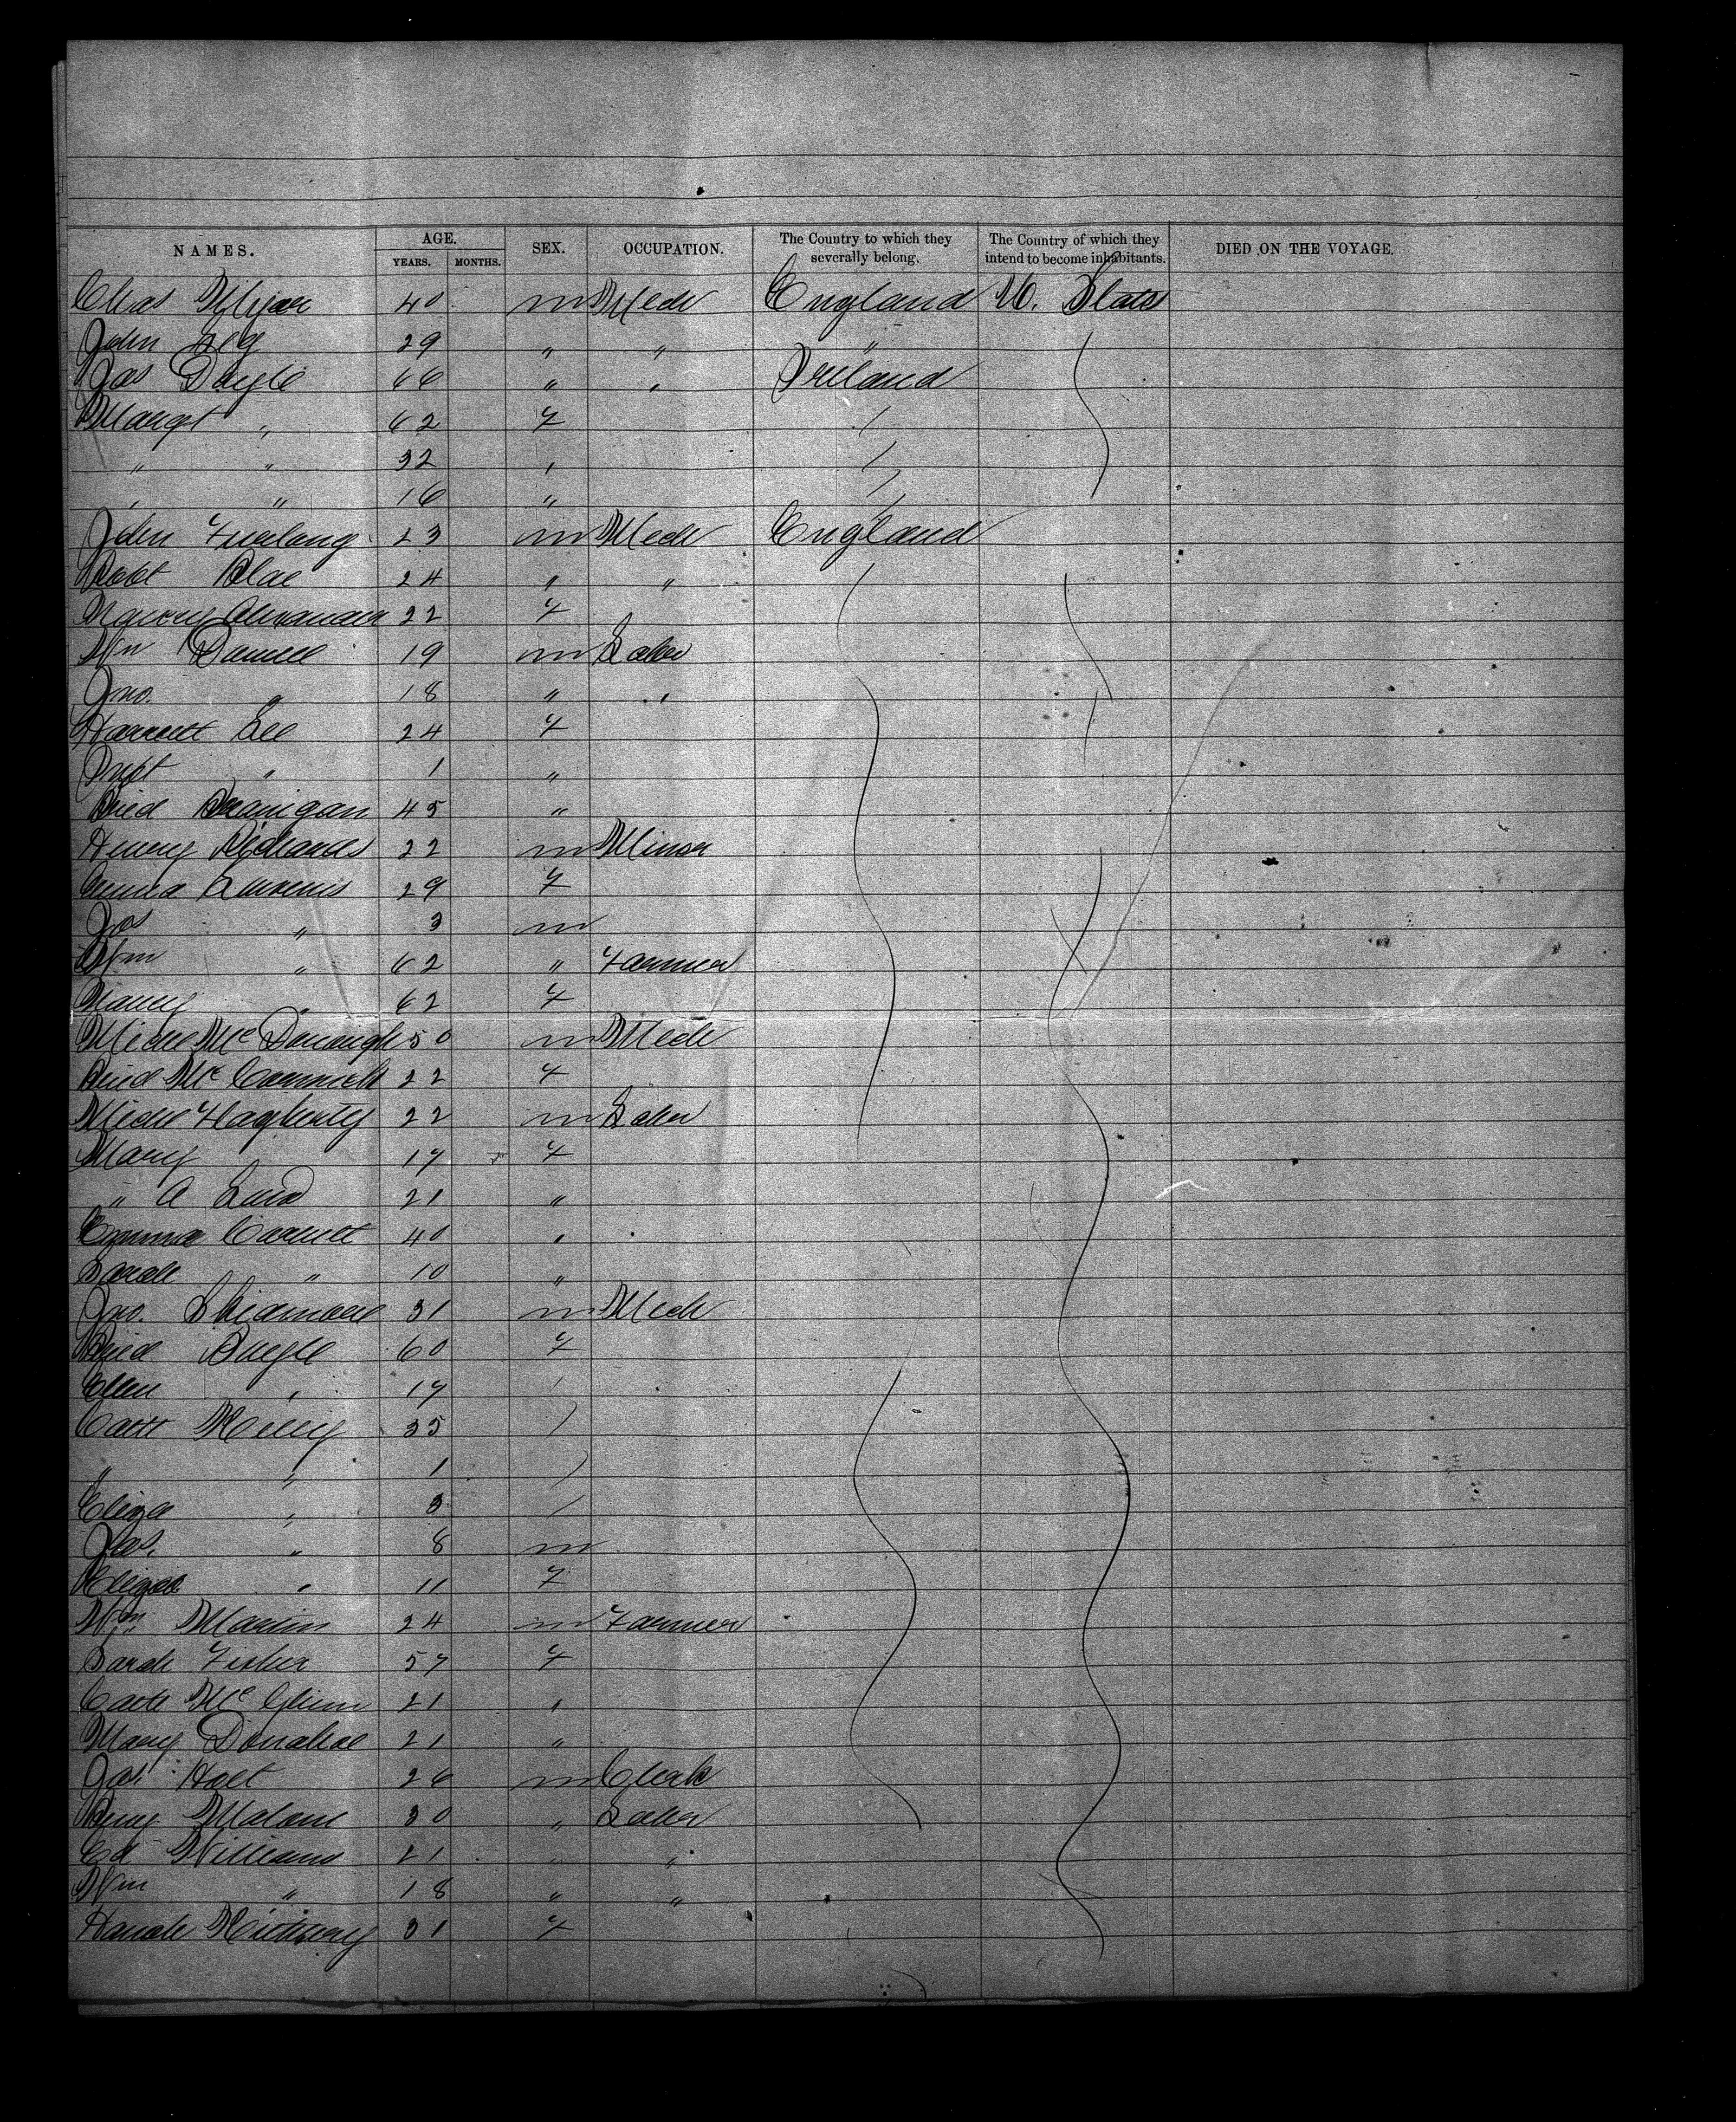 NAMES. AGE. YEARS. MONTHS. SEX. OCCUPATION. The Country to which they severally belong. The Country of which they intend to become inhabitants. DIED ON THE VOYAGE.
Chas 40 m Mech England U. States
John 29 " " "
Jas Doyle 66 " " Ireland
Margt " 62 F
" " 32 "
" " 16 "
John Furlong 23 m Mech England
Robt 24 " "
Nancy Alexander 22 F
Wm Daniell 19 m Labr
Jno. " 18 " "
Harriett Lee 24 F
Inft " 1 "
Brid Branigan 45 "
Henry Richards 22 m Miner
Emma 29 F
Jos " 3 m
Wm " 62 " Farmer
Nancy " 62 F
Michl McDonough 50 m Mech
Brid Mc 22 F
Michl Flagherty 22 m Labr
Mary 17 F
" A 21 "
Emma 40 "
Sarah " 10 "
Jno. Skidmore 31 m Mech
Brid Boyle 60 F
Ellen " 17
Cath Reilly 35
" " 1
Eliza " 3
Jas. " 8 m
Eliza " 11 F
Wm Martin 24 m Farmer
Sarah Fisher 57 F
Cath McGlinn 21 "
Mary Donahoe 21 "
Jas. Holt 26 m Clerk
Malone 30 " Labr
Ed Williams 21 " "
Wm " 18 " "
Hanah 31 F